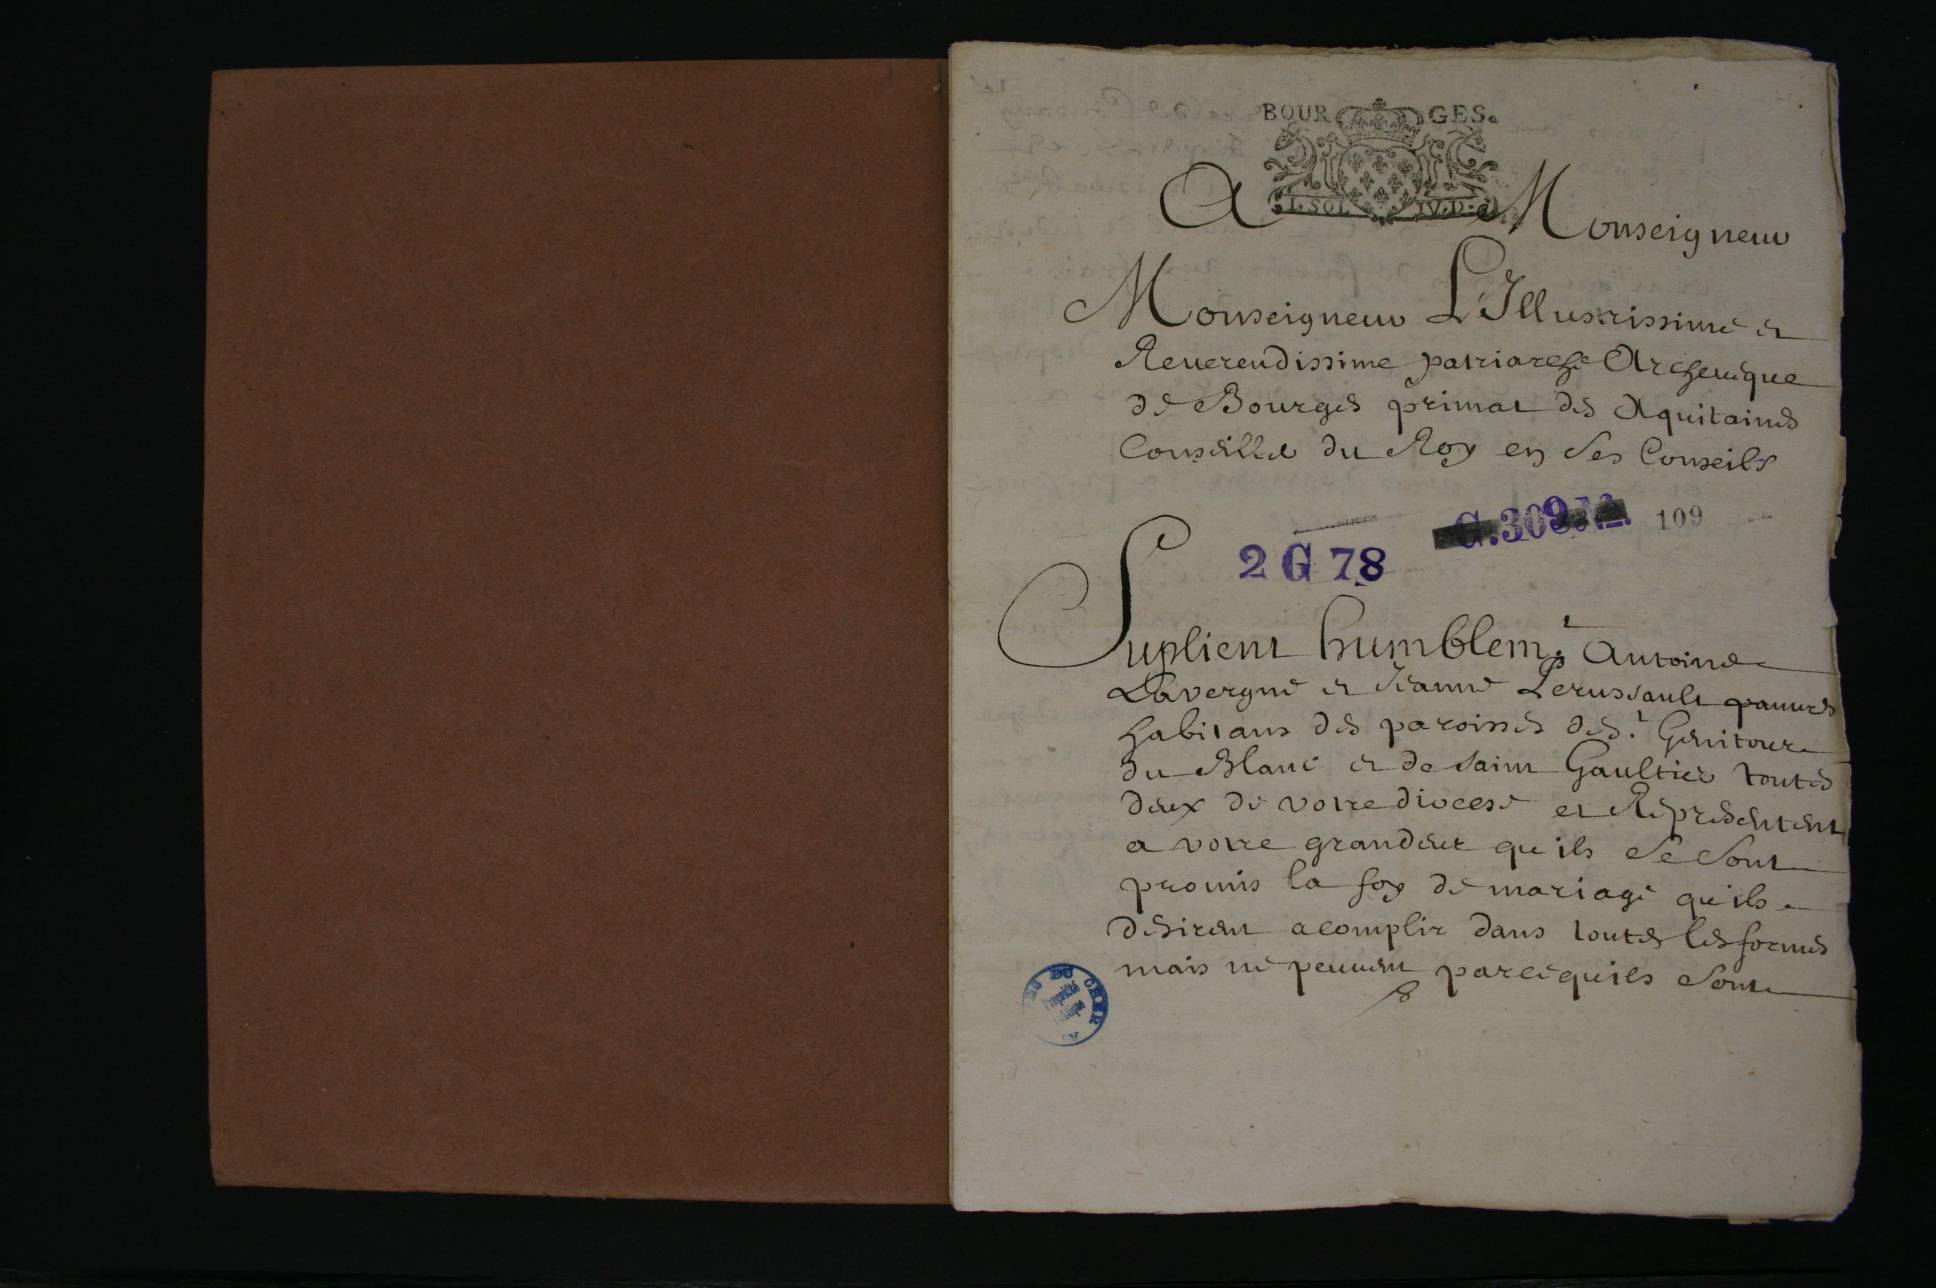 BOUR GES.
I. SOL IV. D.
A Monseigneur
Monseigneur L'Illustrissime et
Reuerendissime patriarche Archeuêque
de Bourges primat des Aquitaines
Conseiller du Roy en ses Conseils
G. 309 109
2 G 78
Suplient humblem.t Antoine
Lavergne et Jeanne Lerussault pauures
habitans des paroisses de S.t Genitour
du Blanc et de saint Gaultier toutes
deux de votre diocese et Representent
a votre grandeur qu'ils se sont
promis la foy de mariage qu'ils
desirent acomplir dans toutes les formes
mais ne peuuent parcequils sont
DU CHER